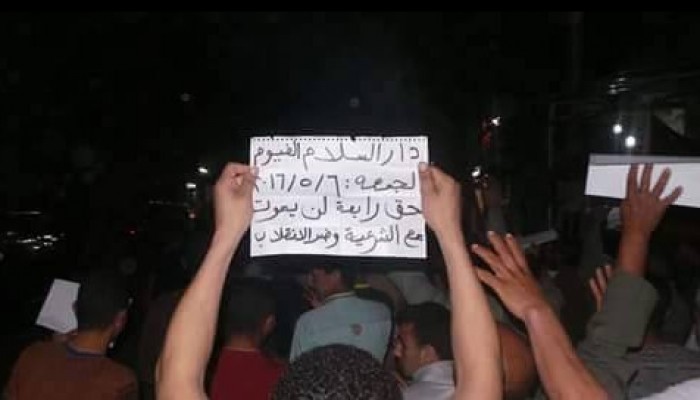 دار السلام الفيوم
لجمعه : ٢٠١٦/٥/٦
حق رابعة لن يموت
مع الشرعية وضد الانقلاب